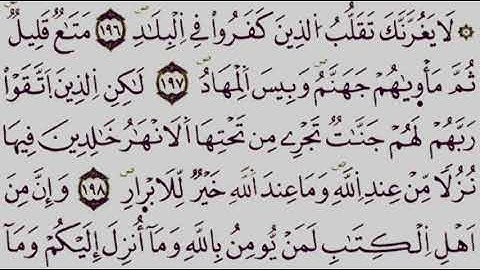 ۞ لَا يَغُرَّنَّكَ تَقَلُّبُ الذِينَ كَفَرُوا فِي اِلْبِلَٰدِ ١٩٦ مَتَٰعٌ قَلِيلٌ
ثُمَّ مَأْوِيٰهُمْ جَهَنَّمُ وَبِيسَ اَلْمِهَادُ ١٩٧ لَٰكِنِ اِلذِينَ اَتَّقَوْا
رَبَّهُمْ لَهُمْ جَنَّٰتٌ تَجْرِے مِن تَحْتِهَا اَلَانْهَٰرُ خَٰلِدِينَ فِيهَا
نُزُلًا مِّنْ عِندِ اِللَّهِ وَمَا عِندَ اَللَّهِ خَيْرٌ لِّلَابْرَارِ ١٩٨ وَإِنَّ مِنَ
اَهْلِ اِلْكِتَٰبِ لَمَنْ يُّومِنُ بِاللَّهِ وَمَآ أُنزِلَ إِلَيْكُمْ وَمَآ